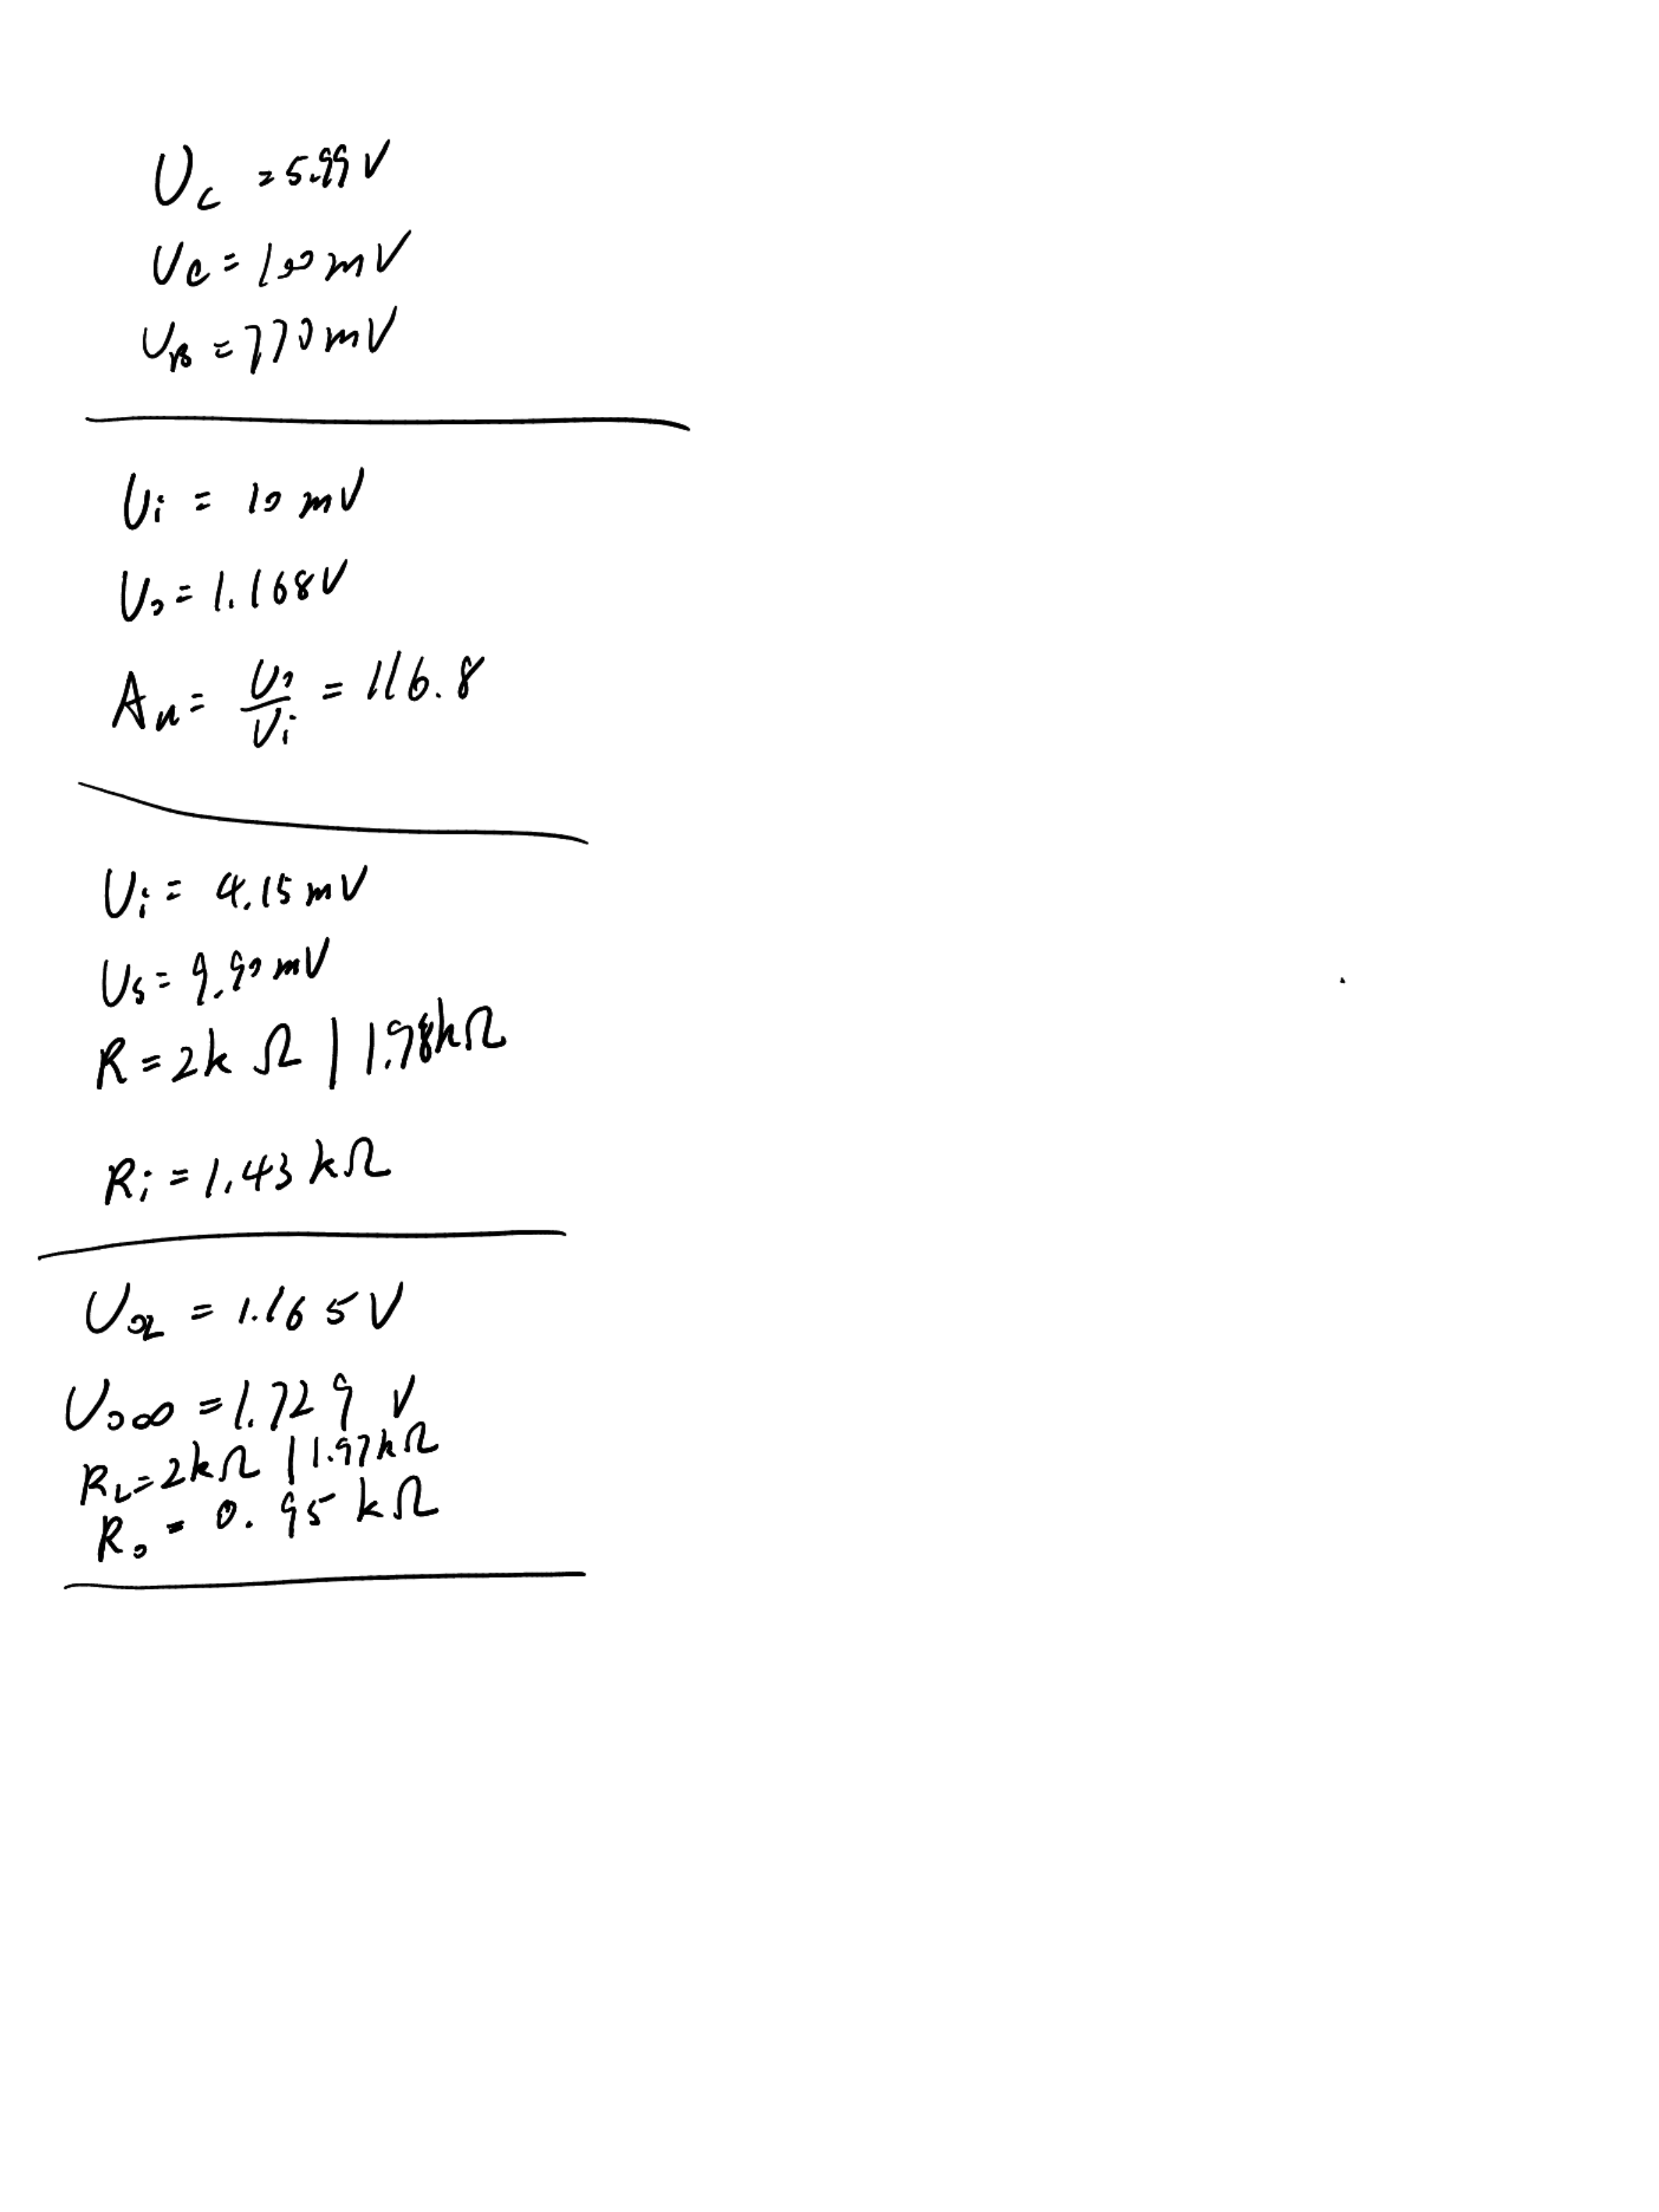 U_c = 5.99V
U_e = 100mV
U_B = 770mV
U_i = 10mV
U_o = 1.168V
A_u = U_o/U_i = 116.8
U_i = 4.15mV
U_s = 9.90mV
R = 2kΩ | 1.98kΩ
R_i = 1.43kΩ
U_oL = 1.165V
U_o∞ = 1.729V
R_L = 2kΩ | 1.97kΩ
R_o = 0.95kΩ